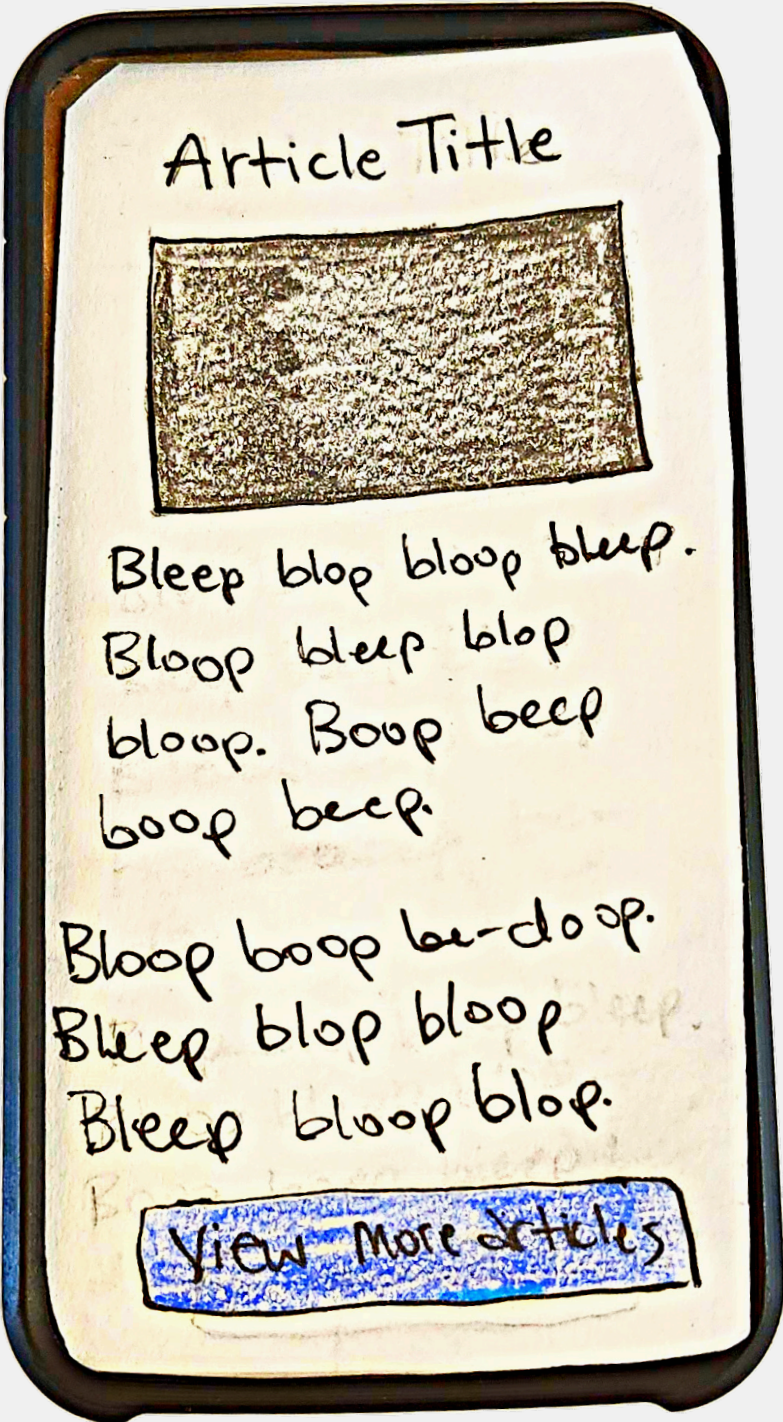 Article Title
Bleep blop bloop bleep.
Bloop bleep blop
bloop. Boop beep
boop beep.
Bloop boop be-doop.
Bleep blop bloop
Bleep bloop blop.
View more articles